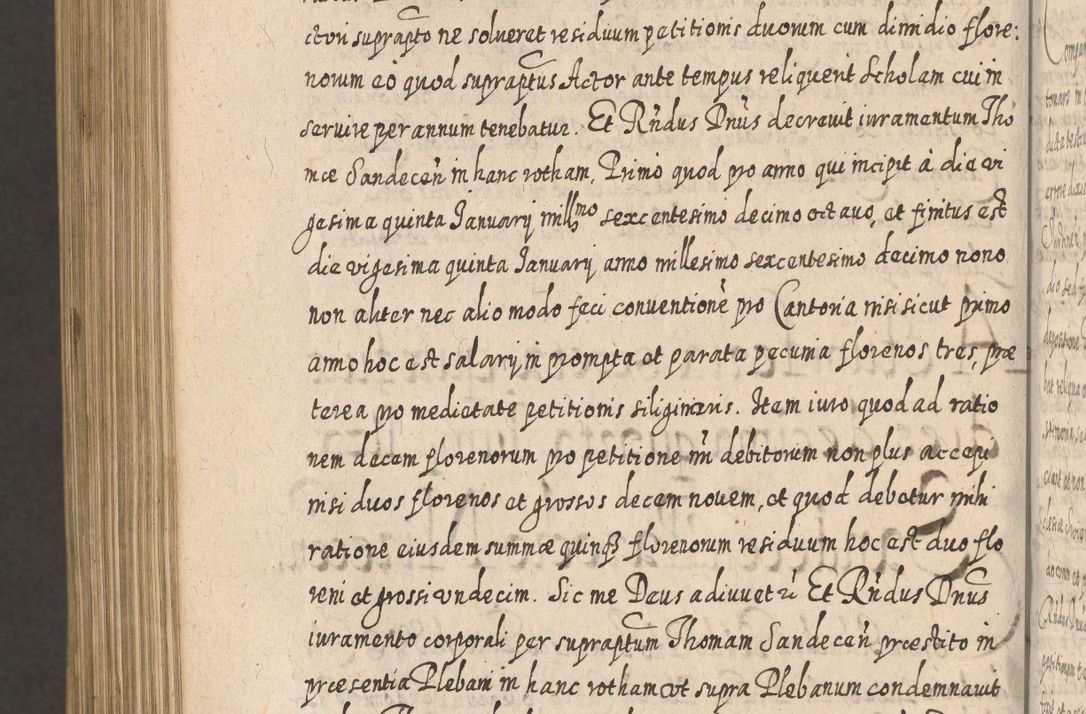 ctori suprapto ne solueret residuum petitionis duorum cum dimidio flore:
norum eo quod supraptus Actor ante tempus reliquerit Scholam cui in
seruire per annum tenebatur. Et Rndus Dnus decreuit iuramentum Tho
mæ Sandecen in hanc rotham, Primo quod pro anno qui incipit à die vi
gesima quinta Januarij millmo sexcentesimo decimo octauo, et finitus est
die vigesima quinta Januarij anno millesimo sexcentesimo decimo nono
non aliter nec alio modo feci conuentione pro Cantoria nisi sicut primo
anno hoc est salarij in prompta et parata pecunia florenos tres, præ
terea pro medietate petitionis siliginaris. Item iuro quod ad ratio
nem decem florenorum pro petitione mi debitorum non plus accepi
nisi duos florenos et grossos decem nouem, et quod debetur mihi
ratione eiusdem summæ quinqз florenorum residuum hoc est duo flo
reni et grossi vndecim. Sic me Deus adiuuet etc Et Rndus Dnus
iuramento corporali per supraptum Thomam Sandecen præstito in
præsentia Plebani in hanc rotham ut supra Plebanum condemnauit